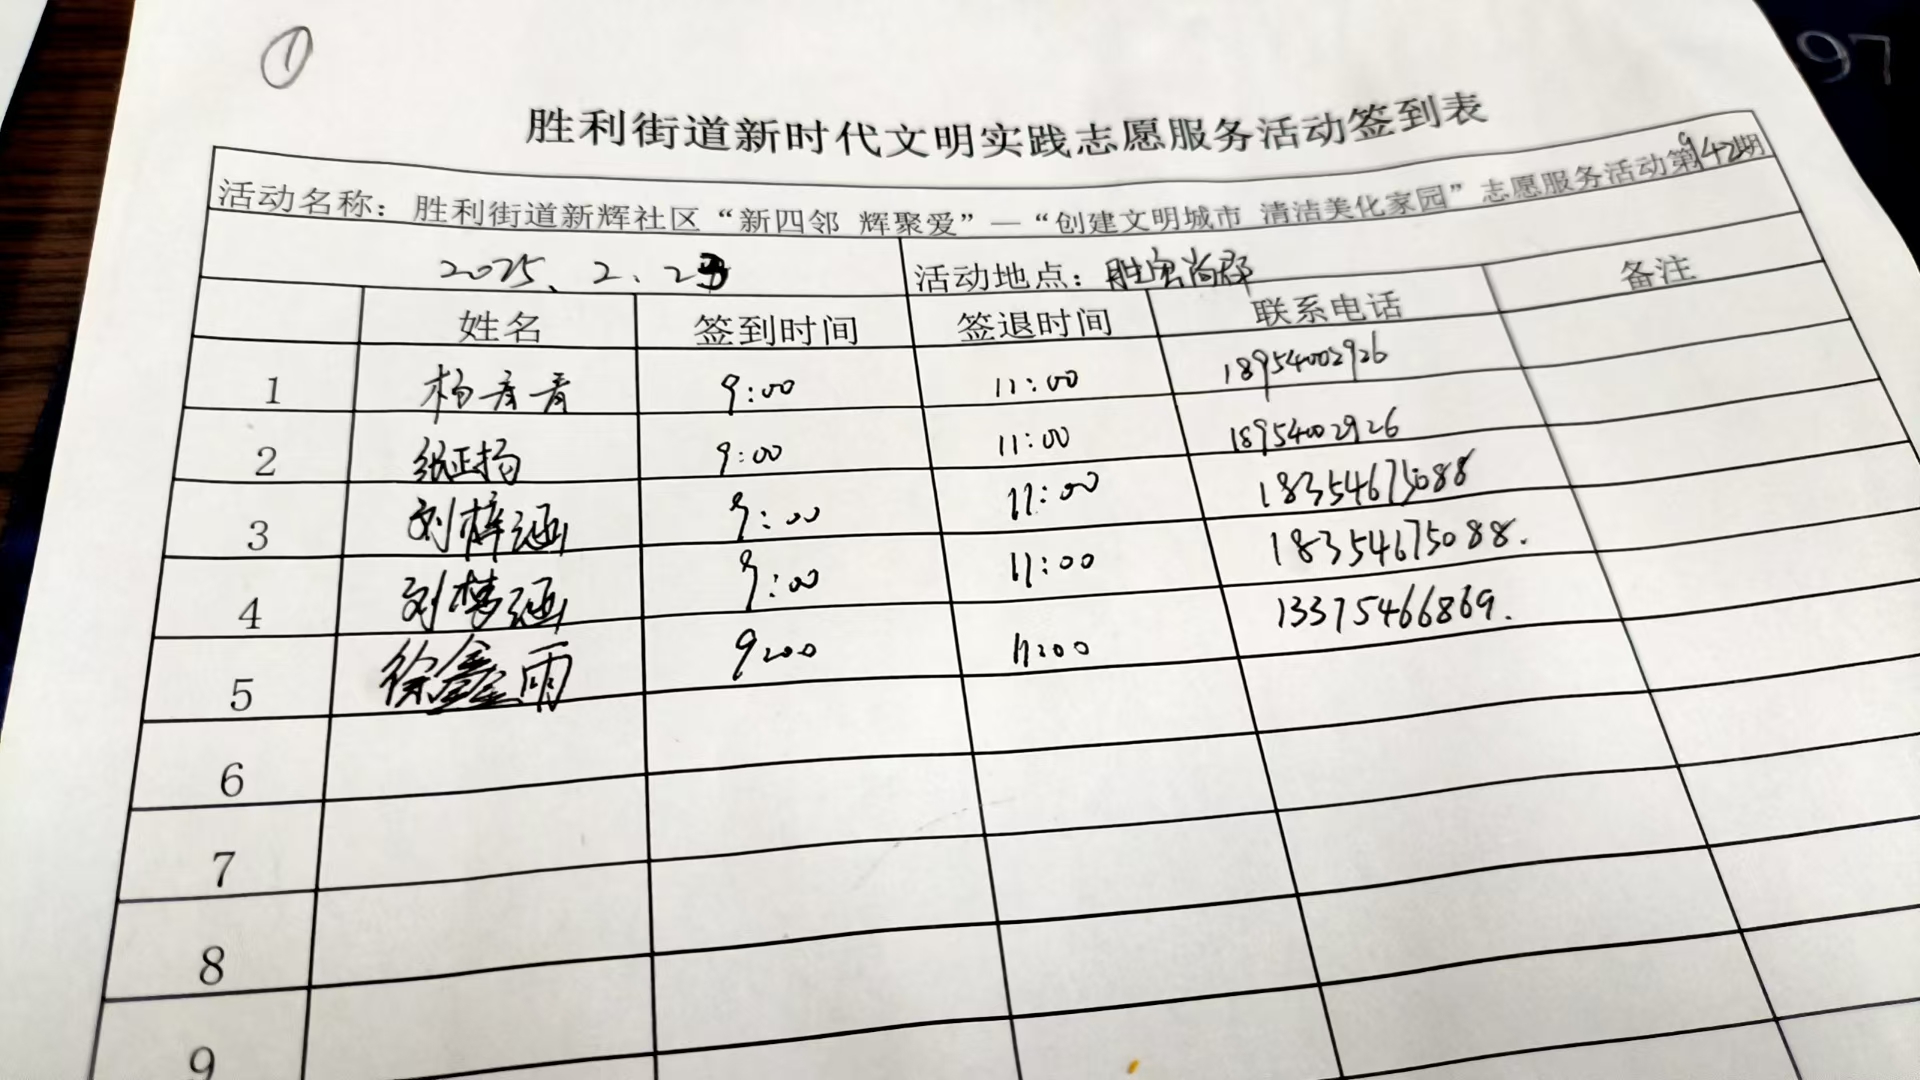 ①
97
胜利街道新时代文明实践志愿服务活动签到表
活动名称：胜利街道新辉社区“新四邻 辉聚爱”—“创建文明城市 清洁美化家园”志愿服务活动第942期
2025、2、23 活动地点：胜宏尚郡
姓名 签到时间 签退时间 联系电话 备注
1 杨彦青 9:00 11:00 18954002926
2 纸正扬 9:00 11:00 18954002926
3 刘梓涵 9:00 11:00 18354675088
4 刘梦涵 9:00 11:00 18354675088.
5 徐鑫雨 9:00 11:00 13375466869.
6
7
8
9